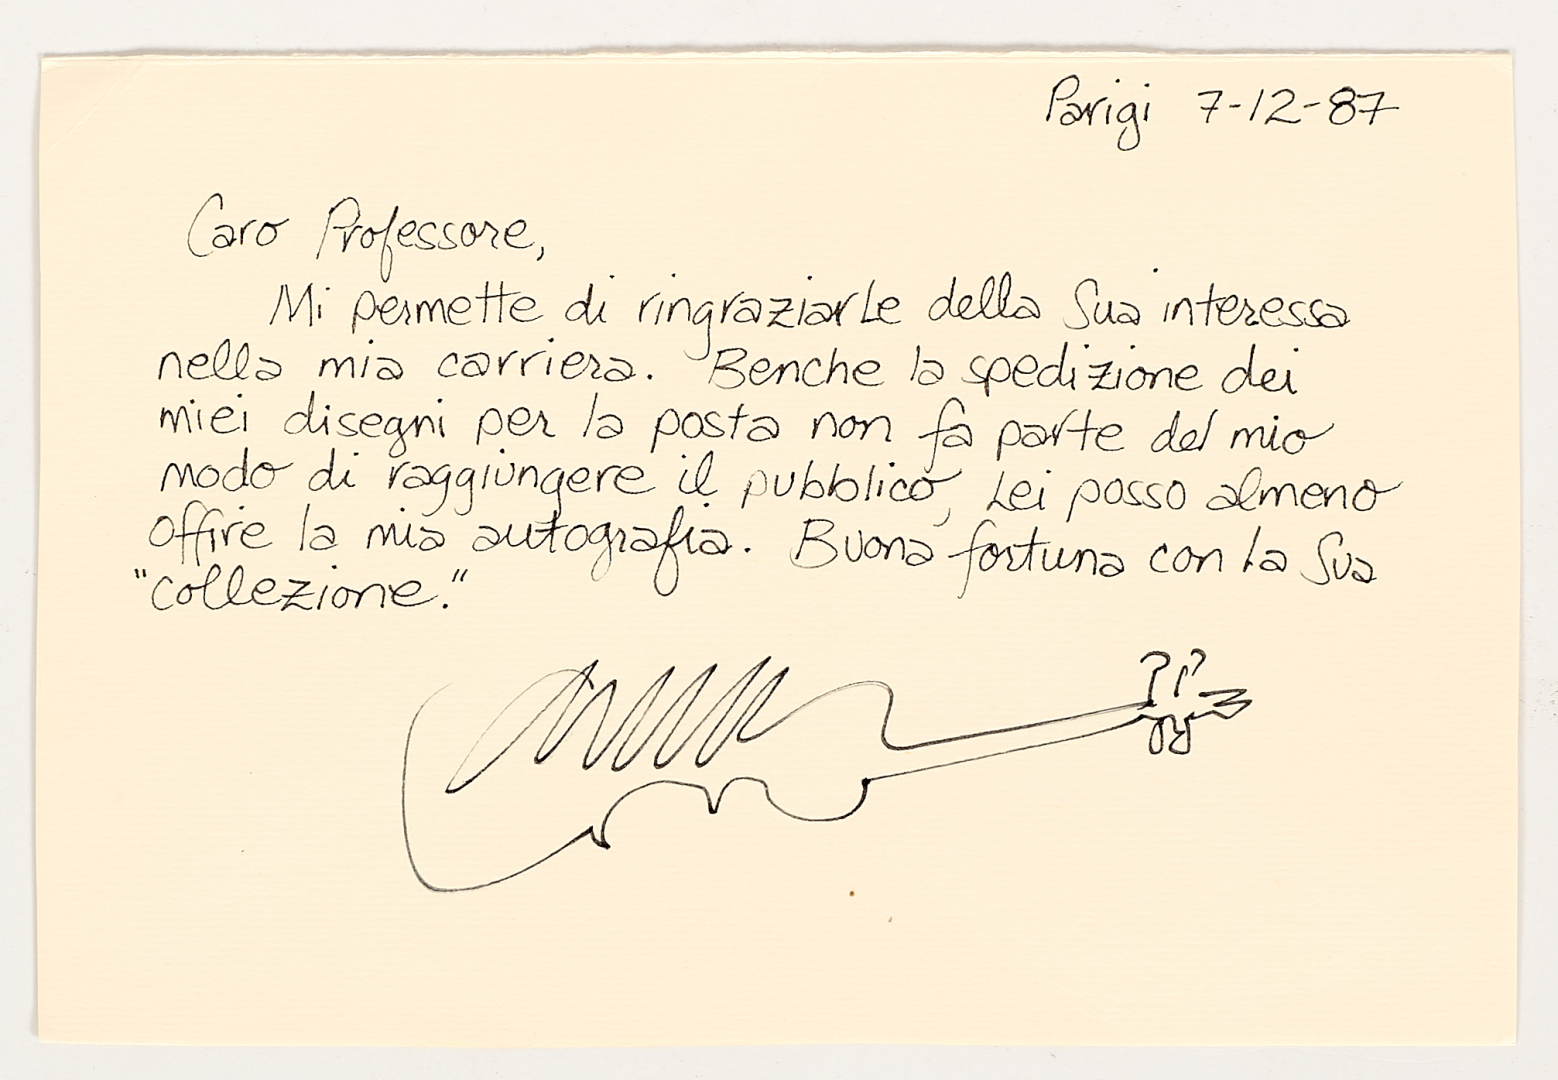 Parigi 7-12-87
Caro Professore,
Mi permette di ringraziarLe della Sua interessa
nella mia carriera. Benche la spedizione dei
miei disegni per la posta non fa parte del mio
modo di raggiungere il pubblico, Lei posso almeno
offire la mia autografia. Buona fortuna con la Sua
"collezione."